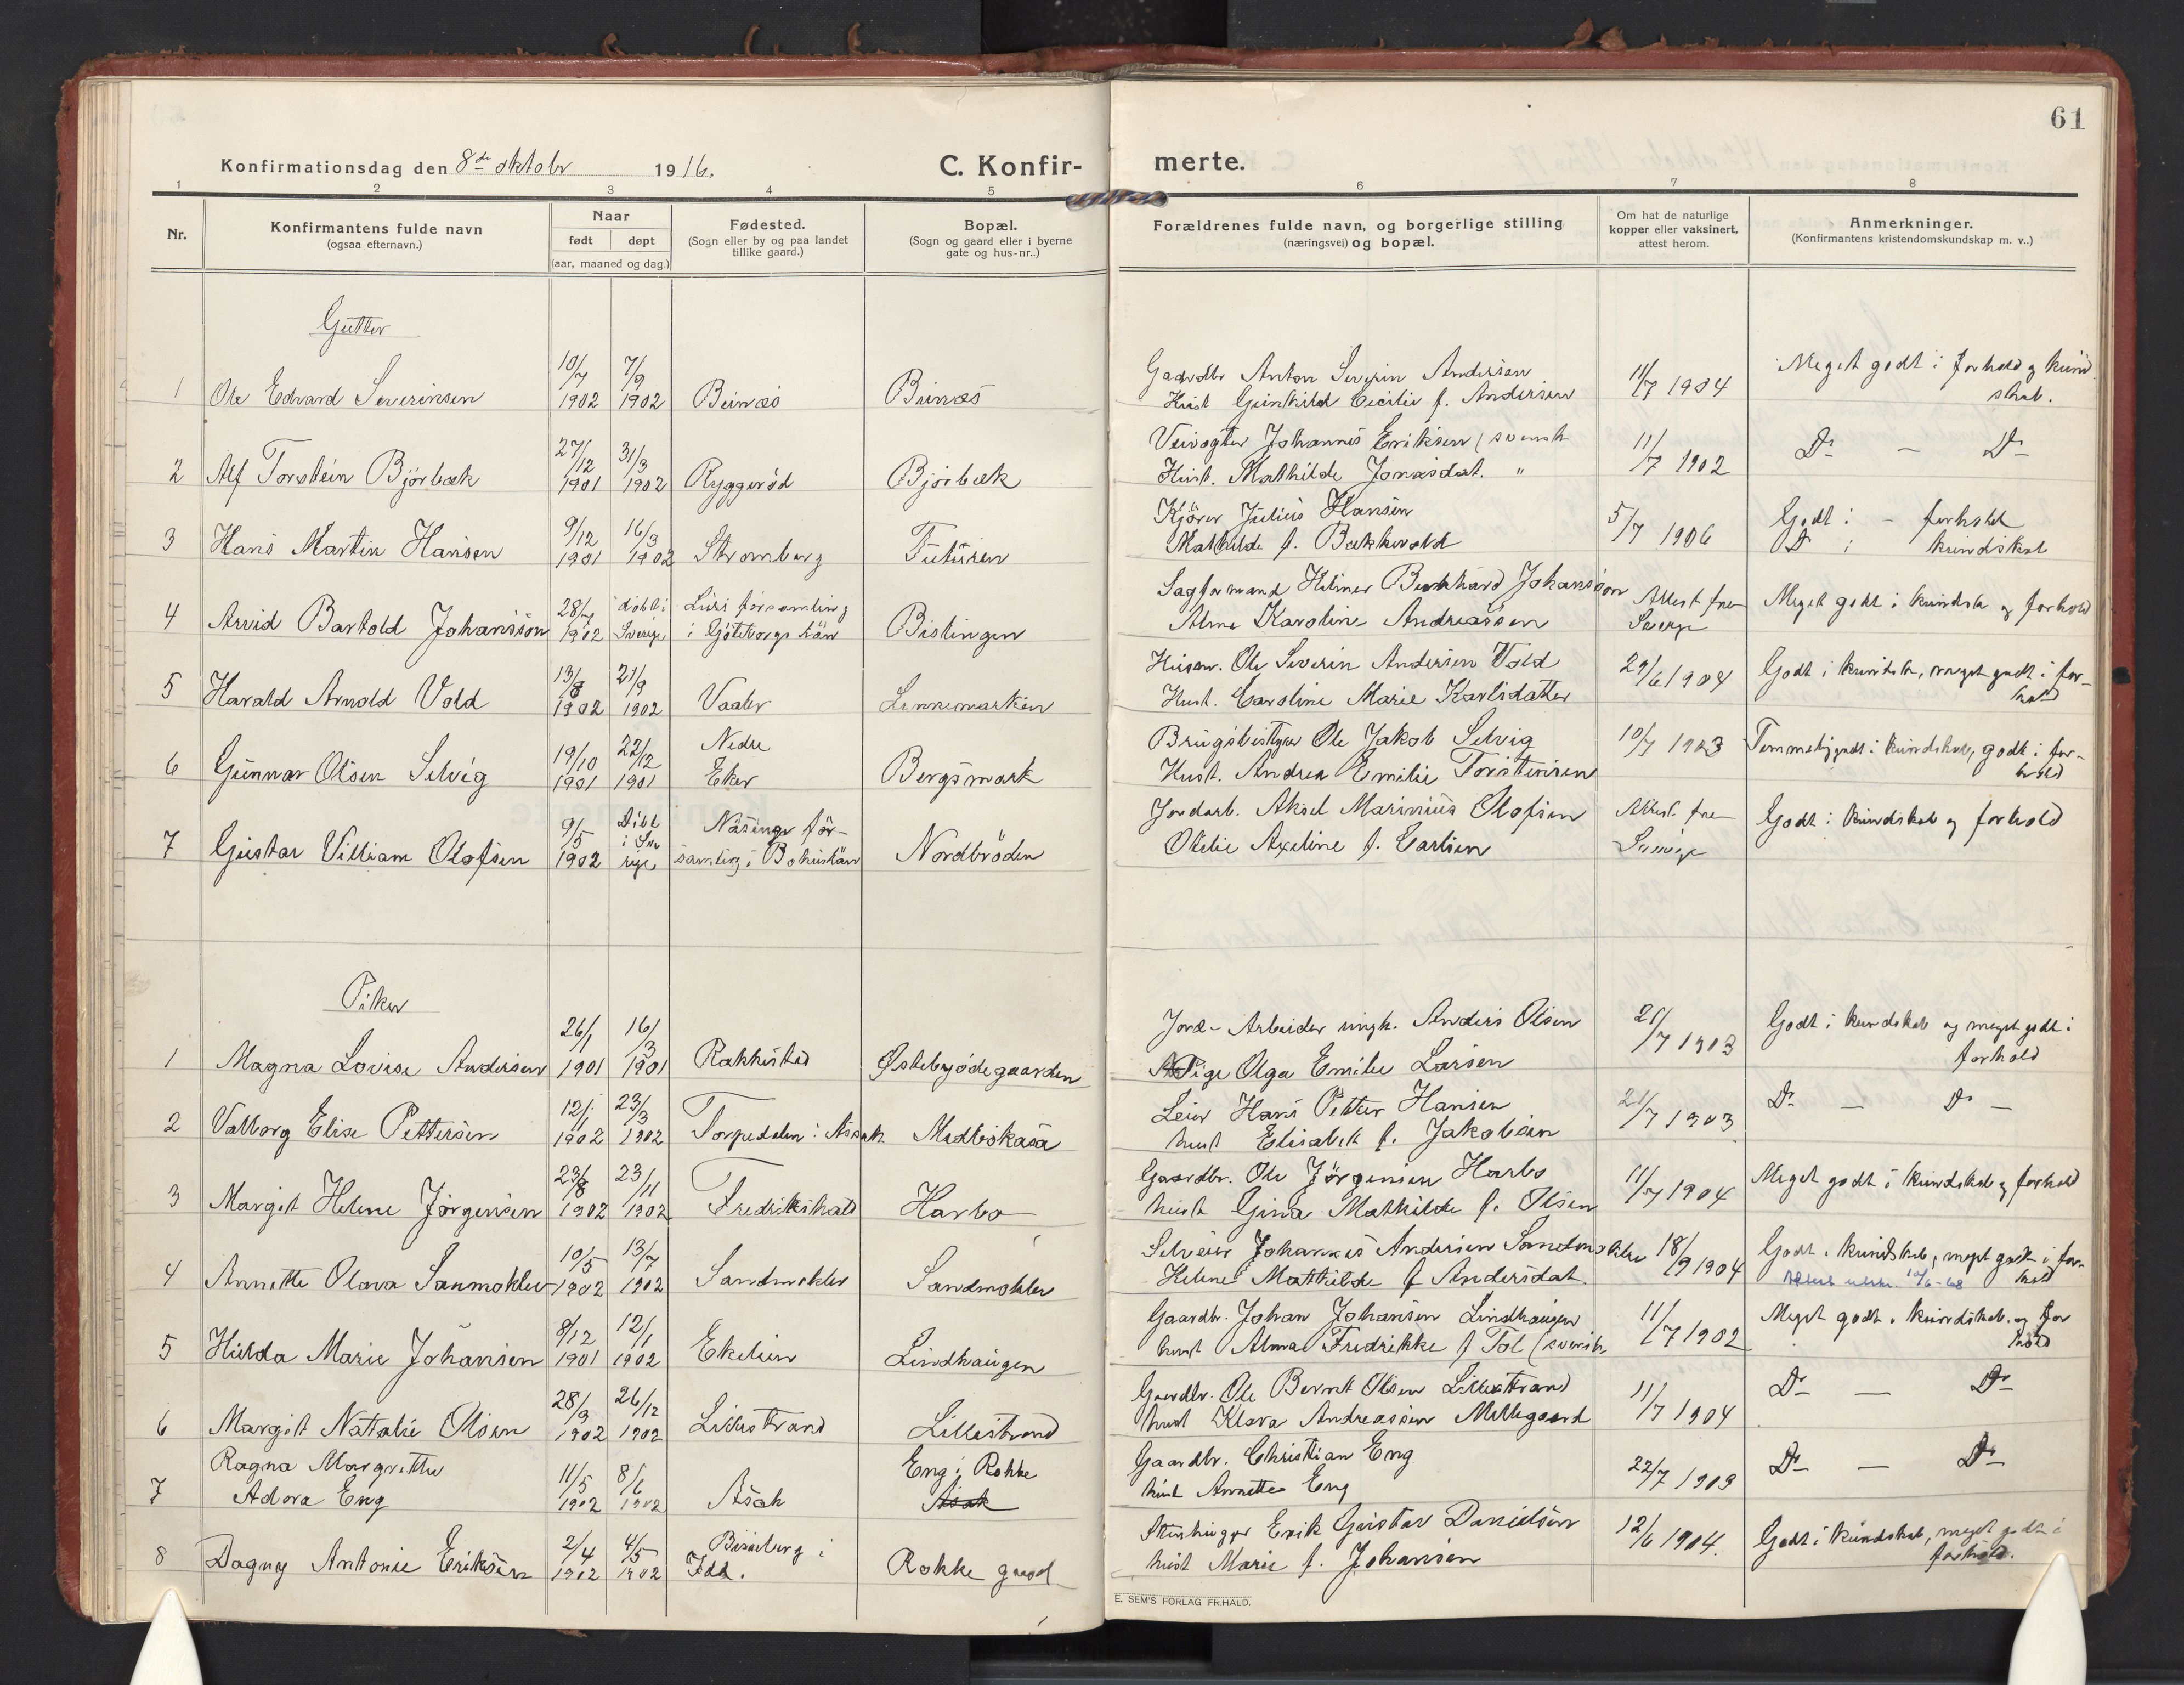 61
Konfirmationsdag den 8de oktobr 1916.
C. Konfir-
merte.
1 2 3 4 5 6 7 8
Nr.
Konfirmantens fulde navn
(ogsaa efternavn.)
Naar
født døpt
(aar, maaned og dag.)
Fødested.
(Sogn eller by og paa landet
tillike gaard.)
Bopæl.
(Sogn og gaard eller i byerne
gate og hus-nr..)
Forældrenes fulde navn, og borgerlige stilling
(næringsvei) og bopæl.
Om hat de naturlige
kopper eller vaksinert,
attest herom.
Anmerkninger.
(Konfirmantens kristendomskundskap m. v..)
Gutter
1 Ole Edvard Severinsen 10/7 1902 7/9 1902 Bunæs Bunæs
Gaardbr Anton Severin Andersen
Hust Gunhild Cecilie f. Andersen
11/7 1904
Meget godt i forhold og kund
skab.
2 Alf Torstein Bjørbæk 27/12 1901 31/3 1902 Ryggerød Bjørbæk
Veivogter Johannes Eriksen (svensk
Hust. Mathilde Jonasdat. "
11/7 1902
Do – Do
3 Hans Martin Hansen 9/12 1901 16/3 1902 Stromberg Tuturen
Kjører Julius Hansen
Mathilde f. Bækkevold
5/7 1906
Godt i – forhold
Do i kundskab
4 Arvid Bartold Johansson 1902 døbt i Sverige Lurs församling i Göteborgs län Bislingen
Sagformand Hilmer Bernhard Johansson
Alma Karoline Andreassen
Attest fra
Sverge
Meget godt i kundsk og forhold
5 Harald Arnold Vold 13/8 1902 21/9 1902 Vaaler Linnemarken
Husm. Ole Severin Andersen Vold
Hust. Caroline Marie Karlsdatter
29/6 1904
Godt i kundsk, meget godt i for-
hold
6 Gunnar Olsen Selvig 19/10 1901 22/12 1901 Nedre Eker Bergsmark
Brugsbestyrer Ole Jakob Selvig
Hust. Andrea Emilie Torstensen
10/7 1903
Temmelig godt i kundskab, godt i for-
hold
7 Gustav Villiam Olofsen 9/5 1902 Døbt i Sverige Näsinge för-samling i Bohuslän Nordbrøden
Jordarb. Aksel Marinius Olofsen
Otilie Axeline f. Carlsen
Attest fra
Sverige
Godt i kundskab og forhold
Piker
1 Magna Lovise Andersen 26/1 1901 16/3 1901 Rakkestad Østebyødegaarden
Jord-Arbeider ungk. Anders Olsen
Pige Olga Emilie Larsen
21/7 1903
Godt i kundskab og meget godt i
forhold
2 Valborg Elise Pettersen 12/1 1902 23/3 1902 Torpedalen i Asak Medbøkasa
Leier Hans Petter Hansen
hust Elisabet f. Jakobsen
21/7 1903
Do – Do –
3 Margit Helene Jørgensen 23/8 1902 23/11 1902 Fredrikshald Harbo
Gaardbr. Ole Jørgensen Harbo
hust Gina Mathilde f. Olsen
11/7 1904
Meget godt i kundskab og forhold
4 Annette Olava Sanmokler 10/5 1902 13/7 1902 Sandmokler Sandmokler
Selveier Johannes Andersen Sandmokler
Helene Mathilde f Andersdat.
18/9 1904
Godt i kundskab, meget godt i for-
hold
Attest utst. 10/6-68
5 Hilda Marie Johansen 8/12 1901 12/1 1902 Ekelien Lindhaugen
Gaardbr. Johan Johansen Lindhaugen
hust Alma Fredrikke f Tol (svensk
11/7 1902
Meget godt i kundskab. og for
hold
6 Margit Natalie Olsen 28/9 1902 26/12 1902 Lillestrand Lillestrand
Gaardbr. Ole Bernt Olsen Lillestrand
hust Klara Andreassen Mellegaard
11/7 1904
Do – Do
7 Ragna Margrethe Adora Eng 11/5 1902 8/6 1902 Asak Eng i Rokke Asak
Gaardbr. Christian Eng
hust Annette Eng
22/7 1903
Do – Do
8 Dagny Antonie Eriksen 2/4 1902 4/5 1902 Bisseberg i Idd. Rokke gaard
Stenhugger Erik Gustav Danielsen
hust Marie f. Johansen
12/6 1904.
Godt i kundskab, meget godt i
forhold.
E. SEM'S FORLAG FR.HALD.